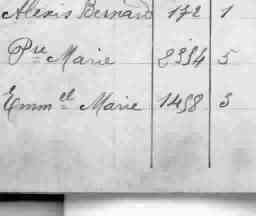 Alexis Bernard 172 1
Pre Marie 2354 5
Emmel Marie 1498 3